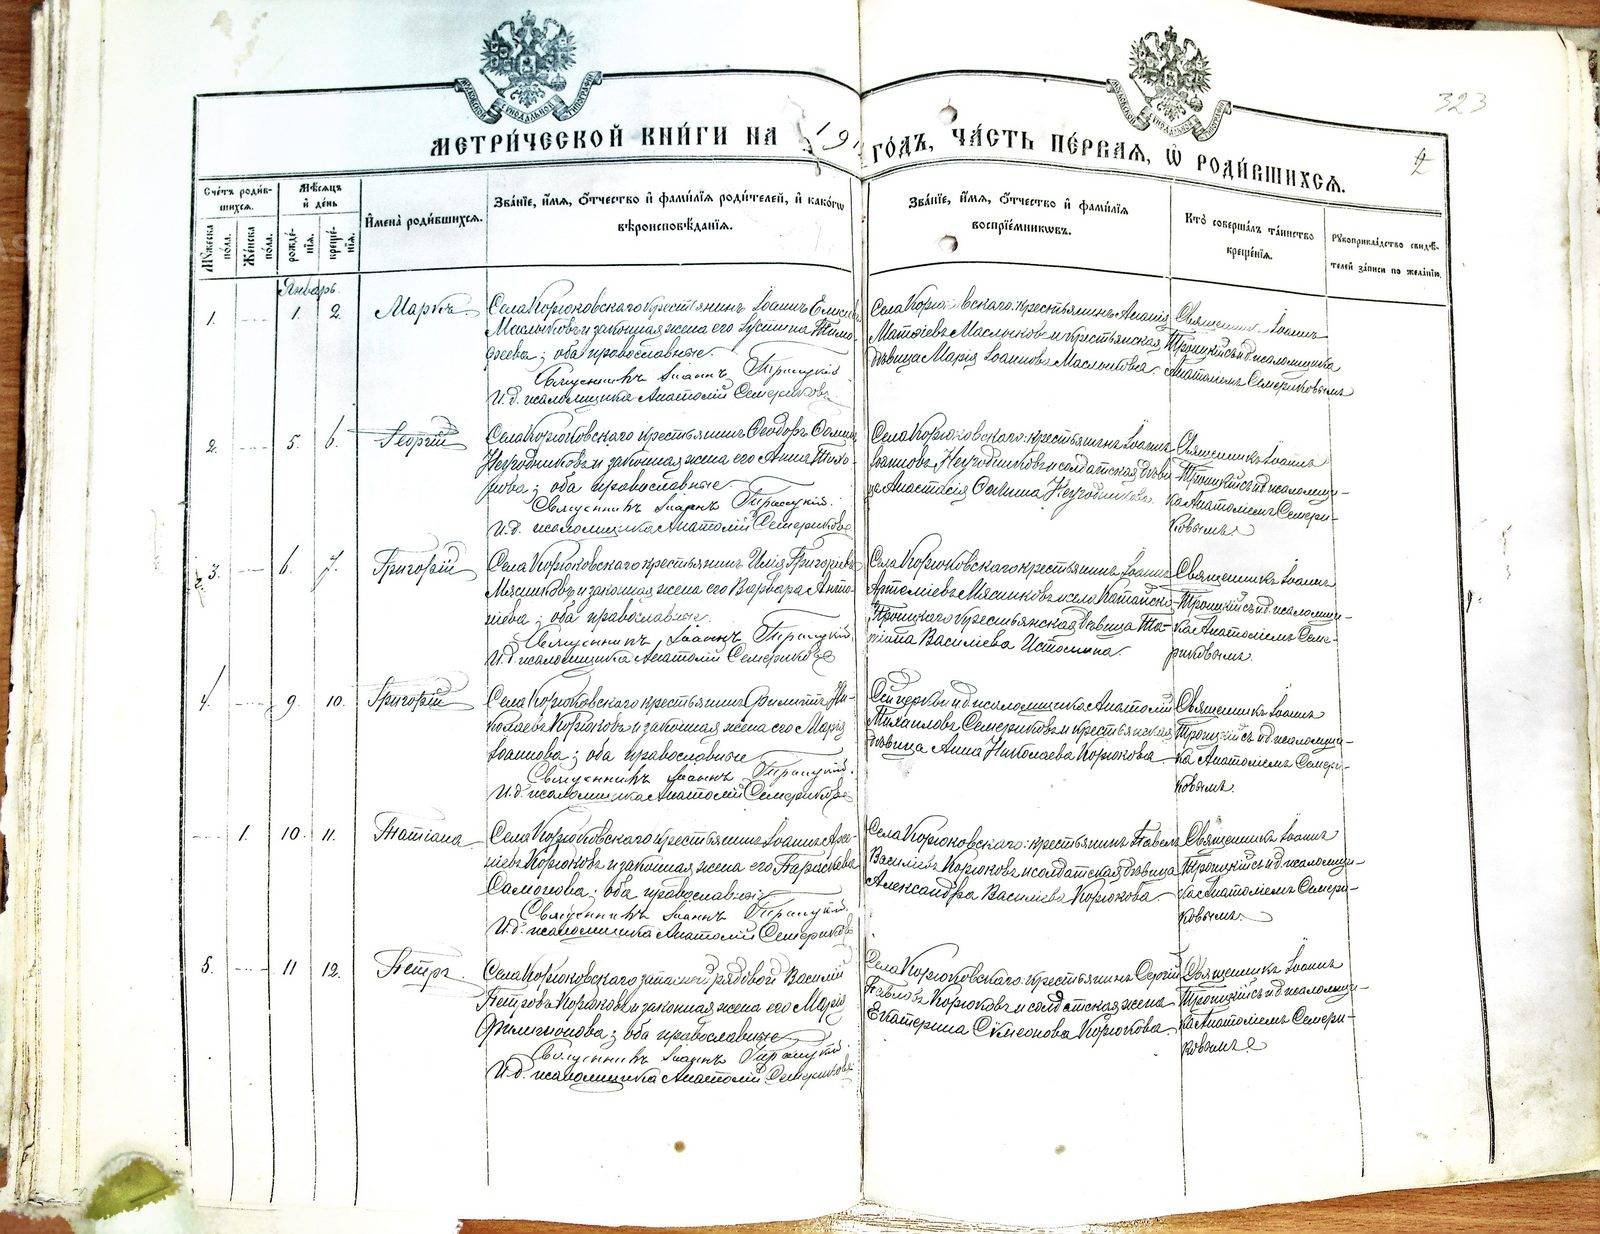 323
МОСКОВСКОЙ СѴНОДАЛЬНОЙ ТИПОГРАФІИ
МЕТРИ́ЧЕСКОЙ КНИ́ГИ НА 191 ГО́ДЪ, ЧА́СТЬ ПЕ́РВАЯ, Ѡ РОДИ́ВШИХСЯ.
2
Сче́тъ роди́в-
шихся.
Му́жеска по́ла.
Же́нска по́ла.
Мѣ́сяцъ
и҆ де́нь
рожде́-
нія.
креще́-
нія.
И҆мена̀ роди́вшихся.
Зва́ніе, и҆́мя, ѻ҆́тчество и҆ фами́лія роди́телей, и҆ како́гѡ
вѣроисповѣ́данія.
Зва́ніе, и҆́мя, ѻ҆́тчество и҆ фами́лія
воспріе́мникѡвъ.
Кто̀ соверша́лъ та́инство
креще́нія.
Рꙋкоприкла́дство свидѣ́-
телей за́писи по жела́нію.
Январь.
1. 1. 2. Маркъ
Села Корюковскаго крестьянинъ Іоаннъ
Маслыковъ и законная жена его Іустина Тимо-
феева; оба православные.
Священникъ Іоаннъ Троицкій
И.д. псаломщика Анатолій Семериковъ
Села Корюковскаго крестьянинъ
Маслыковъ и крестьянская
дѣвица Марія Іоаннова Маслыкова
Священникъ Іоаннъ
Троицкій съ и д псаломщика
Анатоліемъ Семериковымъ
2. 5. 6. Георгій
Села Корюковскаго крестьянинъ Ѳеодоръ
и законная жена его Анна Тихо-
нова; оба православные.
Священникъ Іоаннъ Троицкій.
И.д. псаломщика Анатолій Семериковъ
Села Корюковскаго крестьянинъ Іоаннъ
Іоанновъ и солдатская дѣви-
ца Анастасія
Священникъ Іоаннъ
Троицкій съ и д псаломщи-
ка Анатоліемъ Семери-
ковымъ.
3. 6. 7. Григорій
Села Корюковскаго крестьянинъ Илія Григоріевъ
Мясниковъ и законная жена его Варвара Анто-
ніева; оба православные.
Священникъ Іоаннъ Троицкій
И.д. псаломщика Анатолій Семериковъ
Села Корюковскаго крестьянинъ Іоаннъ
Мясниковъ и села Катайско-
Троицкаго крестьянская дѣвица Та-
тіана Василіева Истомина.
Священникъ Іоаннъ
Троицкій съ и д псаломщи-
ка Анатоліемъ Семе-
риковымъ.
4. 9. 10. Григорій
Села Корюковскаго крестьянинъ Филиппъ Ни-
колаевъ Корюковъ и законная жена его Марія
Іоаннова; оба православные
Священникъ Іоаннъ Троицкій.
И.д. псаломщика Анатолій Семериковъ
Сей церкви и д псаломщика Анатолій
Михаиловъ Семериковъ и крестьянская
дѣвица Анна Николаева Корюкова
Священникъ Іоаннъ
Троицкій съ и д псаломщи-
ка Анатоліемъ Семери-
ковымъ.
1. 10. 11. Татіана
Села Корюковскаго крестьянинъ Іоаннъ Арсе-
ніевъ Корюковъ и законная жена его Параскева
Самонова; оба православные
Священникъ Іоаннъ Троицкій.
И.д. псаломщика Анатолій Семериковъ
Села Корюковскаго крестьянинъ Павелъ
Василіевъ Корюковъ и солдатская дѣвица
Александра Василіева Корюкова.
Священникъ Іоаннъ
Троицкій съ и д псаломщи-
ка Анатоліемъ Семери-
ковымъ.
5. 11 12. Петръ.
Села Корюковскаго запасной рядовой Василій
Петровъ Корюковъ и законная жена его Марія
Филимонова; оба православные
Священникъ Іоаннъ Троицкій.
И.д. псаломщика Анатолій Семериковъ
Села Корюковскаго крестьянинъ Сергій
Павловъ Корюковъ и солдатская жена
Екатерина Симеонова Корюкова.
Священникъ Іоаннъ
Троицкій съ и д псаломщи-
ка Анатоліемъ Семери-
ковымъ.